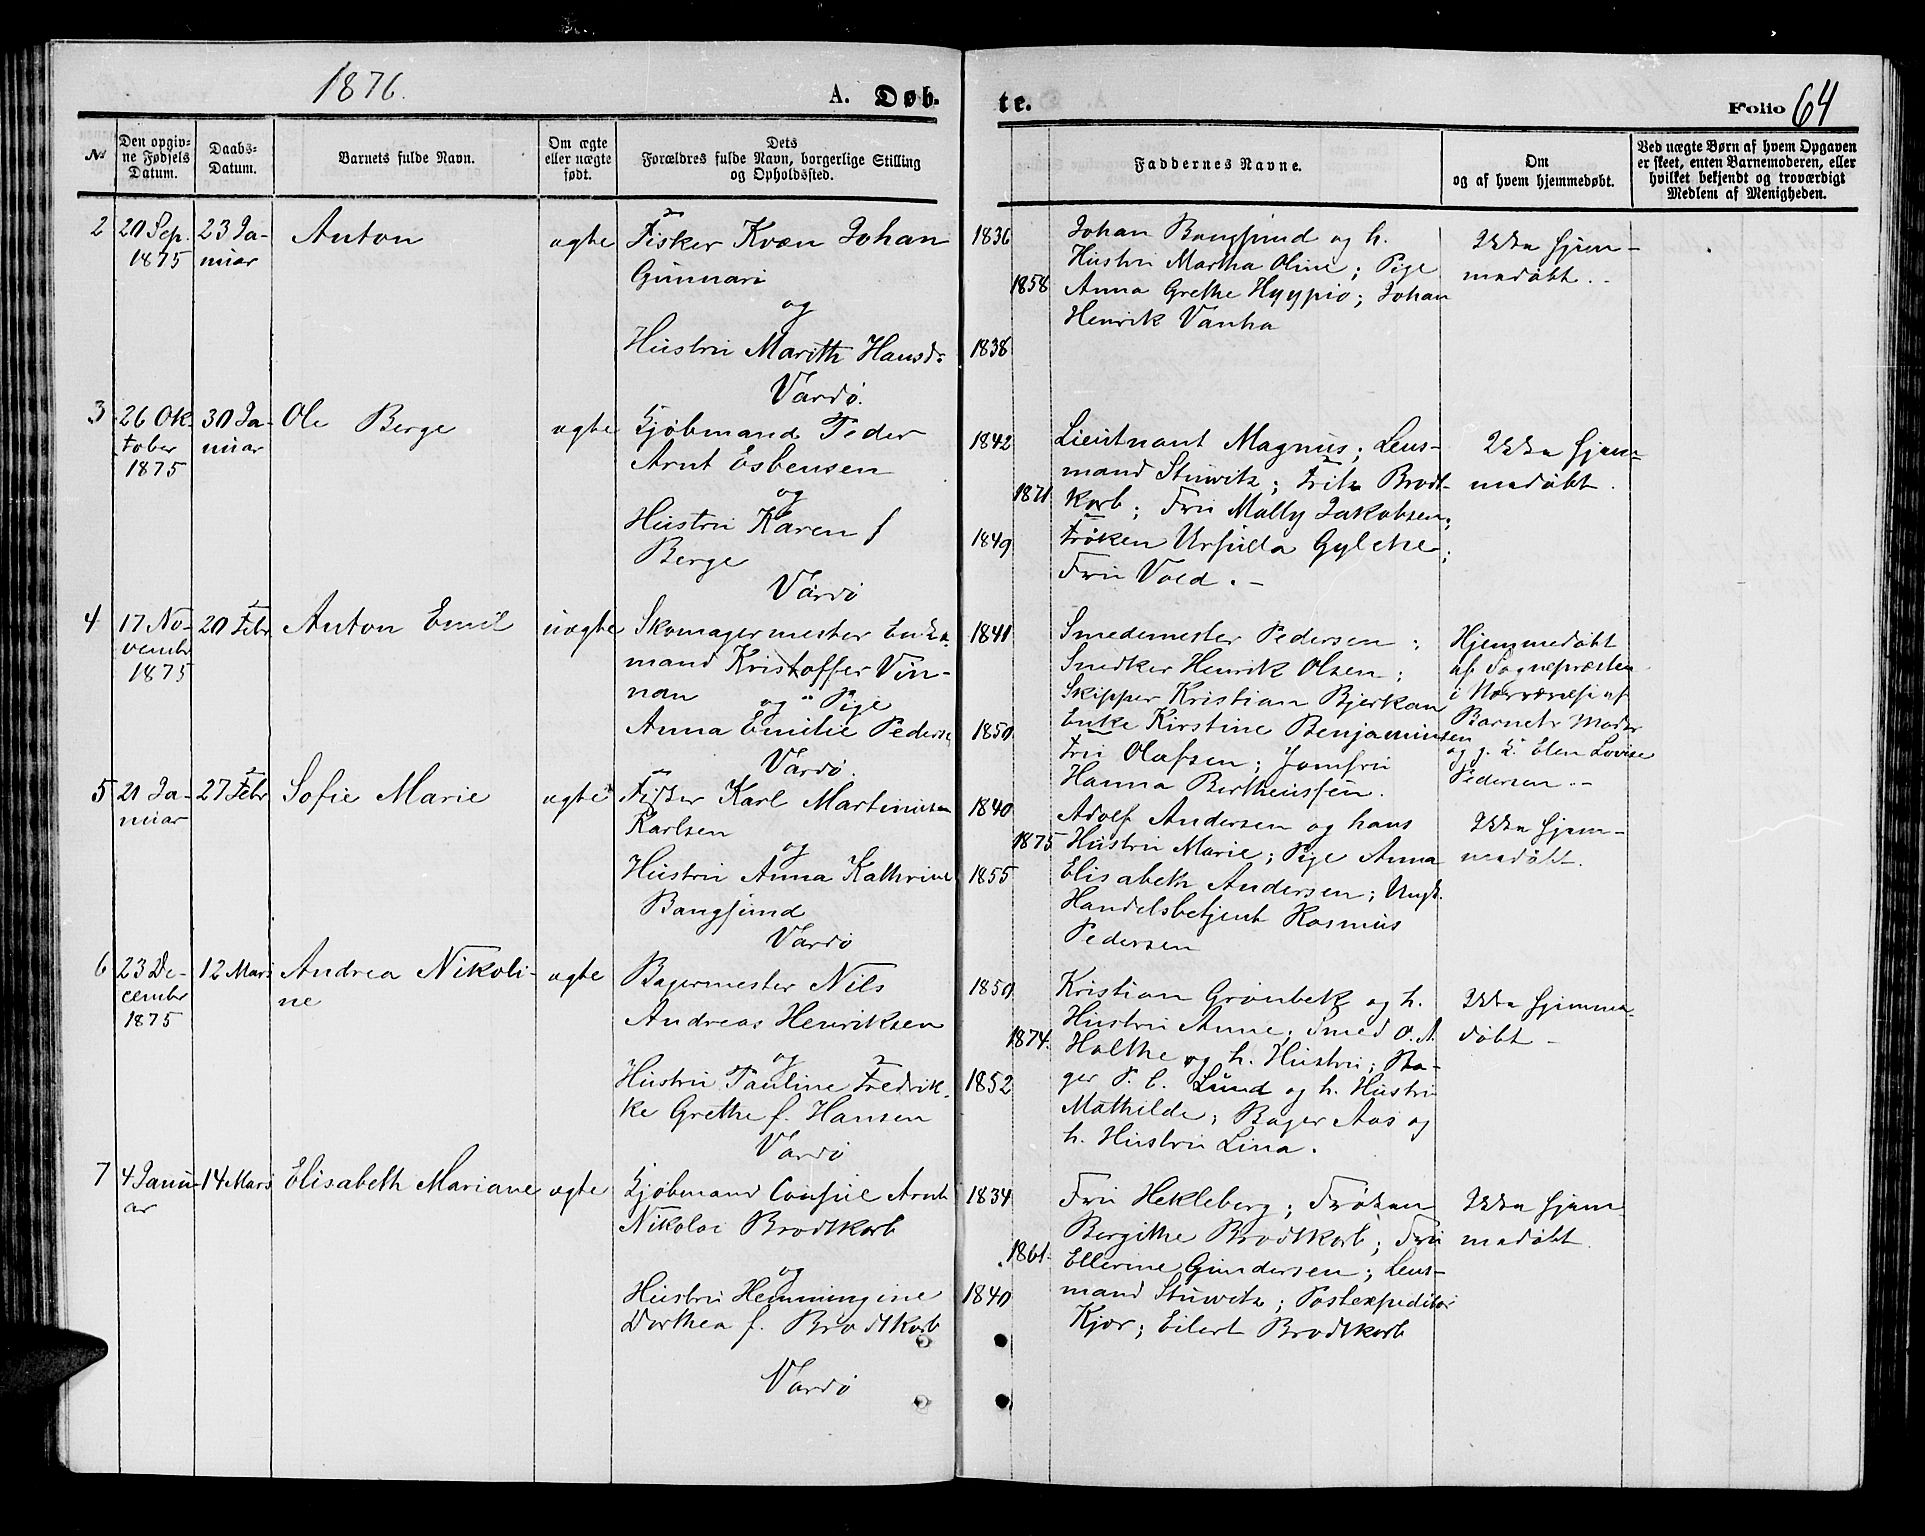 1876.
A. Døb-
te.
Folio 64
No
Den opgiv-
ne Fødsels
Datum.
Daabs-
Datum.
Barnets fulde Navn.
Om ægte
eller uægte
født.
Dets
Forældres fulde Navn, borgerlige Stilling
og Opholdssted.
Faddernes Navne.
Om
og af hvem hjemmedøbt.
Ved uægte Børn af hvem Opgaven
er skeet, enten Barnemoderen, eller
hvilket bekjendt og troværdigt
Medlem af Menigheden.
2
20 Sep.
1875
23 Ja-
nuar
Anton
ægte
Fisker Kvæn Johan
Gunnari
og
Hustru Marith Hansd:
Vardø.
1836
1858
1838
Johan Bangsund og h.
Hustru Martha Oline; Pige
Anna Grethe Hyypiö; Johan
Henrik Vanha
Ikke hjem-
medøbt.
3
26 Ok-
tober
1875
30 Ja-
nuar
Ole Berge
ægte
Kjøbmand Peder
Arnt Esbensen
og
Hustru Karen f
Berge
Vardø
1842
1871
1849
Lieutnant Magnus; Lens-
mand Stuwitz; Fritz Brodt-
korb; Fru Mally Jakobsen;
Frøken Ursulla Gylche;
Fru Vold. -
Ikke hjem-
medøbt.
4
17 No-
vembr
1875
20 Febr
Anton Emil
uægte
Skomagermester Enke-
mand Kristoffer Vin-
nan og Pige
Anna Emilie Peders
Vardø.
1841
1850
Smedemester Pedersen;
Snedker Henrik Olsen;
Skipper Kristian Bjerkan
Enke Kirstine Benjaminsen
Fru Olafsen; Jomfru
Hanna Bertheussen.
Hjemmedøbt
af Sognepræsten
i
Barnets Moder
og g. K. Elen Lovise
Pedersen -
5
21 Ja-
nuar
27 Febr
Sofie Marie
ægte
Fisker Karl Martinusen
Karlsen
og
Hustru Anna Kathrine
Bangsund
Vardø
1840
1875
1855
Adolf Andersen og hans
Hustru Marie; Pige Anna
Elisabeth Andersen; Ungk.
Handelsbetjent Rasmus
Pedersen
Ikke hjem-
medøbt.
6
23 De-
cembr
1875
12 Mars
Andrea Nikoli-
ne
ægte
Bagermester Nils
Andreas Henriksen
og
Hustru Pauline Fredrik-
ke Grethe f. Hansen
Vardø
1850
1874.
1852
Kristian Grønbek og h.
Hustru Anne; Smed O. A.
Holthe og h. Hustru; Ba-
ger P. C. Lund og h. Hustru
Mathilde; Bager Aas og
h. Hustru Lina.
Ikke hjemme-
døbt -
7
4 Janu-
ar
14 Mars
Elisabeth Mariane
ægte
Kjøbmand Consul Arnt
Nikolai Brodtkorb
og
Hustru Hemmingine
Dorthea f. Brodtkorb
Vardø
1834
1861.
1840
Fru Hekleberg; Frøken
Bergithe Brodtkorb; Fru
Ellerine Gundersen; Lens-
mand Stuwitz; Postexpeditør
Kjær; Eilert Brodtkorb
Ikke hjem-
medøbt.